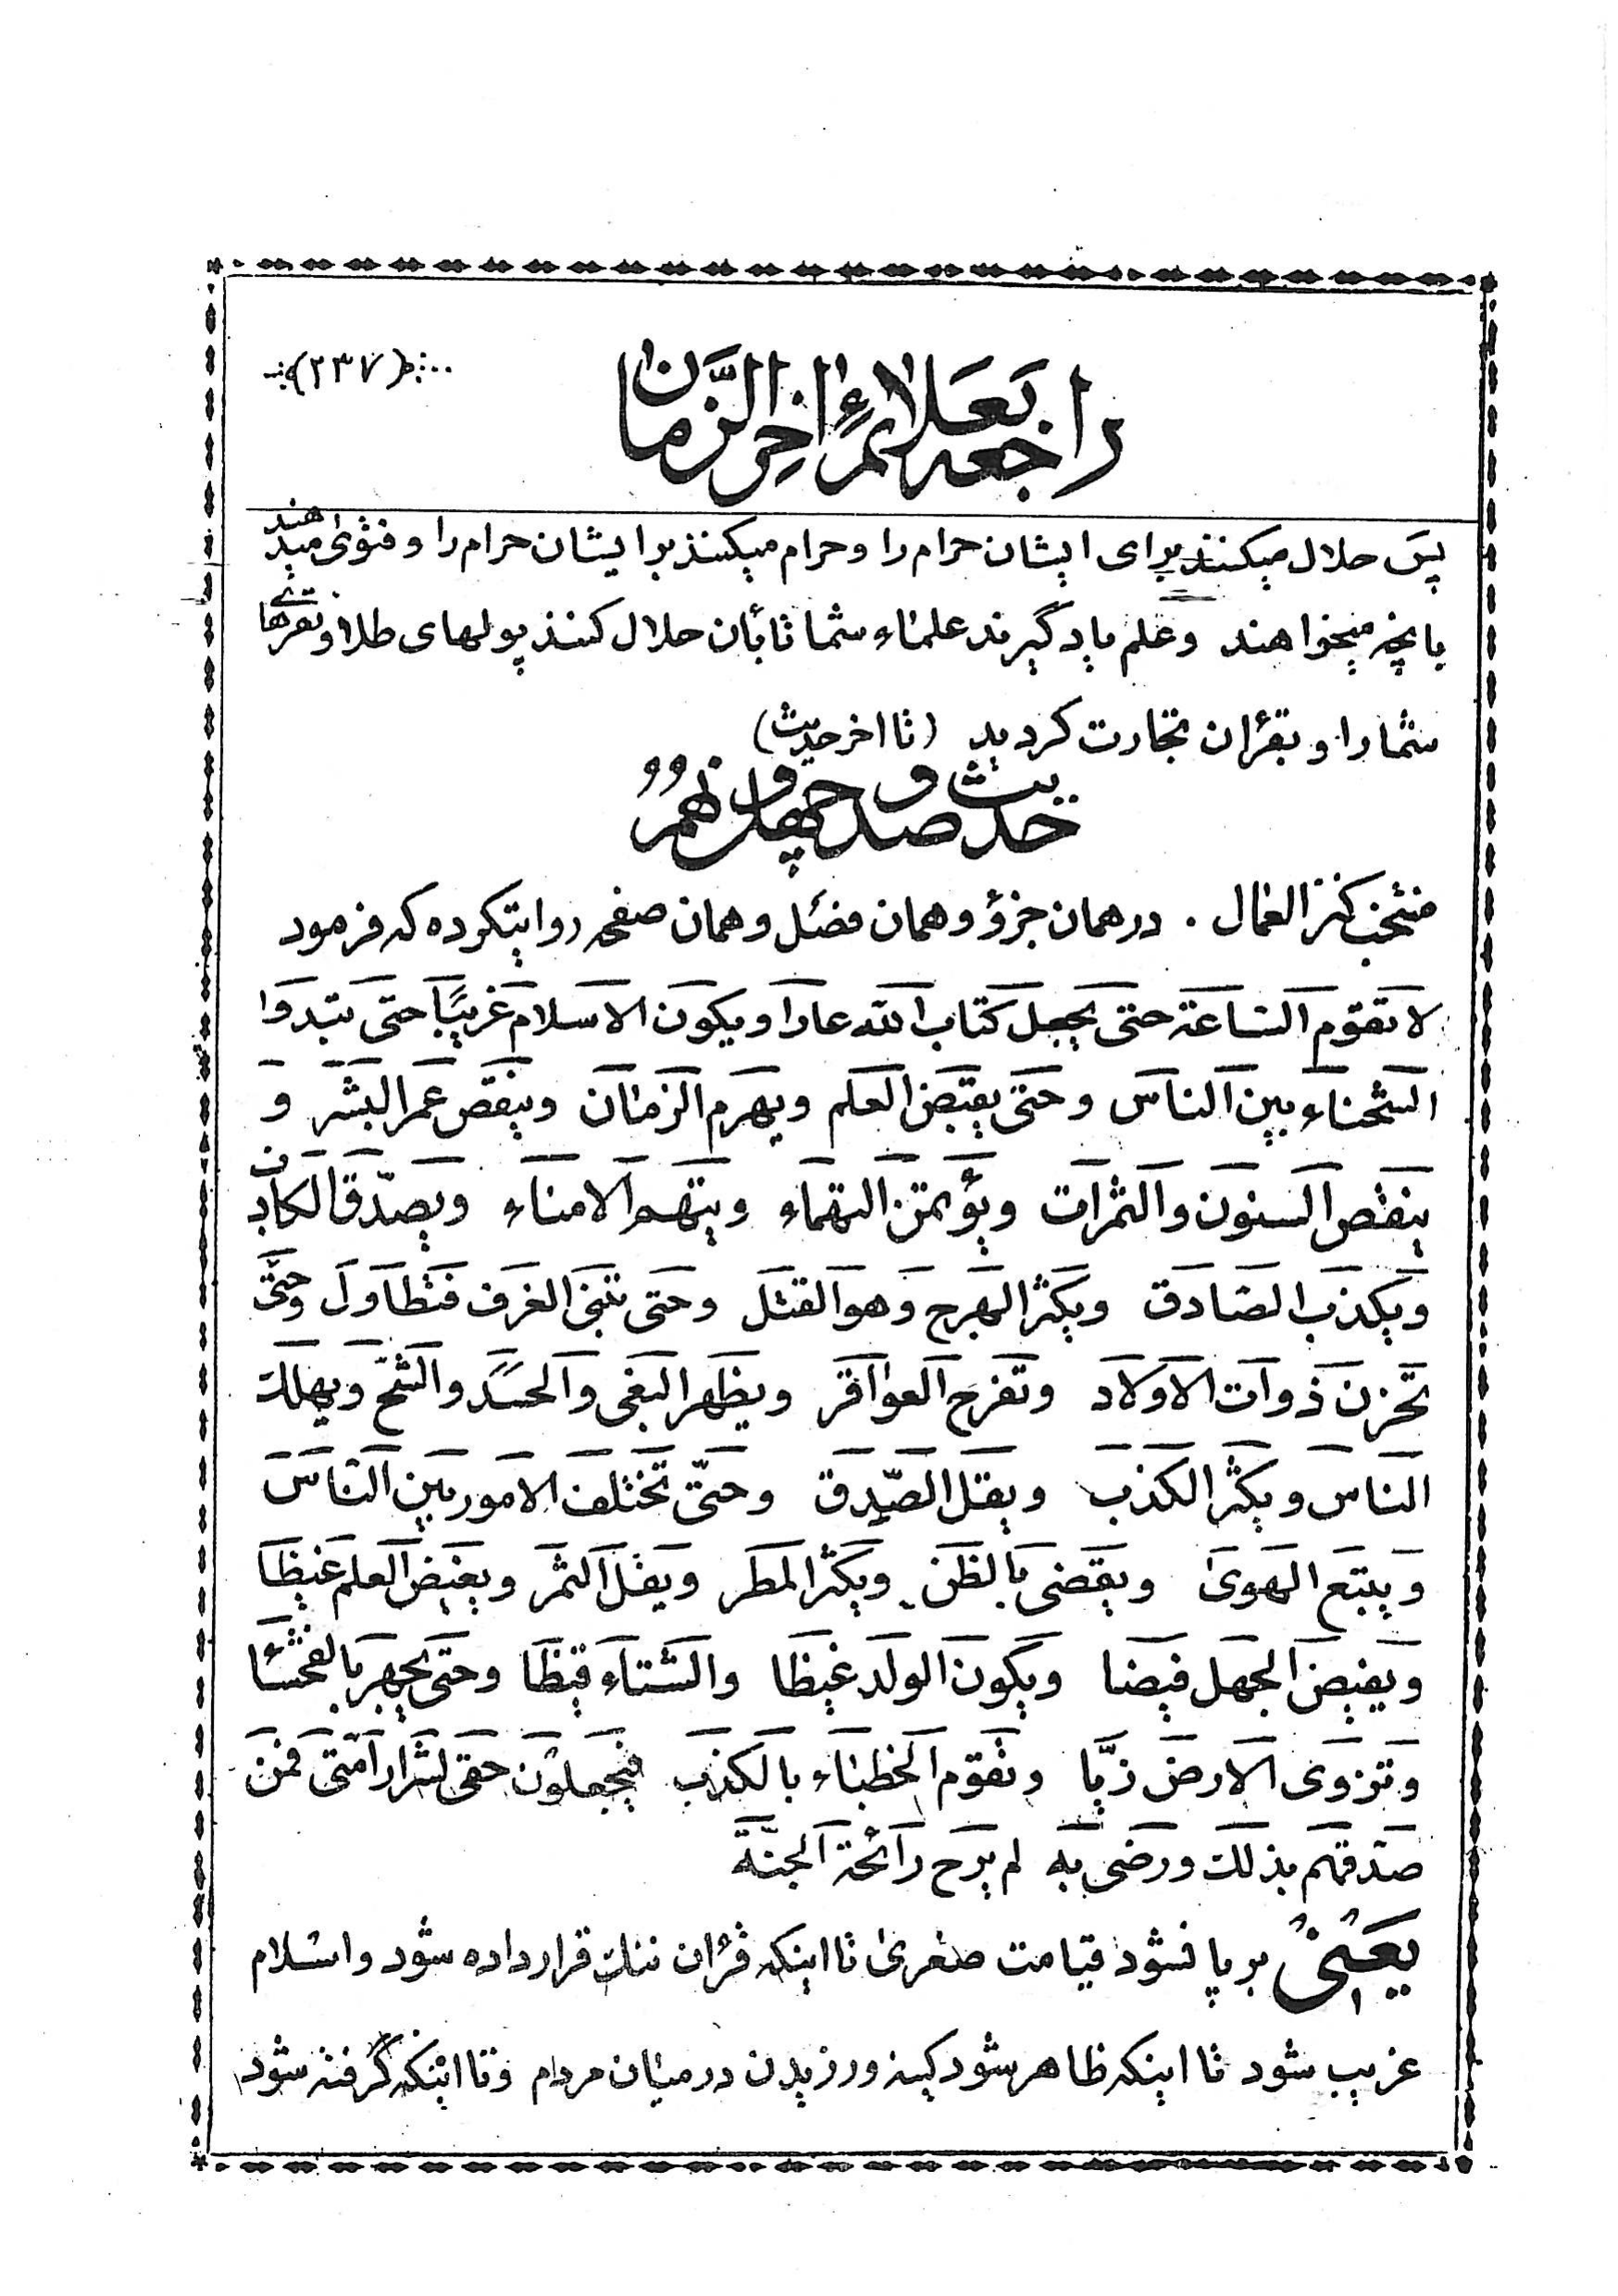 ﴿۲۳۷﴾
راجعه بعلائم آخر الزّمان
پس حلال میکنند برای ایشان حرام را و حرام میکنند برایشان حرام را و فتوی میدهند
بانچه میخواهند وعلم یاد گیرند علماء شما تا بان حلال کنند پولهای طلا و نقرهای
شما را و بقرٔان تجارت کردید (تا اخر حدیث)
حدیث صد و چهل و نهم
منتخب کنز العمال . در همان جزؤ و همان فصل و همان صفحه روایتکرده که فرمود
لا تقوم الساعة حتی یجعل کتاب الله عارا و یکون الاسلام غریبًا حتی تبدوا
الشحناء بین الناس و حتی یقبض العلم ویهرم الزمان وینقص عمر البشر و
ینقص السنون والثمرات ویؤتمن التهماء ویتهم الامناء ویصدّق الکاذب
ویکذب الصادق ویکثر الهرج وهو القتل وحتی تبنی الغرف فتطاول وحتّی
تحزن ذوات الاولاد وتفرح العواقر ویظهر البغی والحسد والشح ویهلک
الناس ویکثر الکذب ویقل الصّدق وحتّی تختلف الامور بین الناس
ویتبع الهوی ویقضی بالظن ویکثر المطر ویقل الثمر ویغیض العلم غیظا
ویفیض الجهل فیضا ویکون الولد غیظا والشتاء قیظا وحتی یجهر بالفحشا
وتزوی الارض زیّا وتقوم الخطباء بالکذب فیجعلون حقی لشرار امتی فمن
صدقهم بذلک ورضی به لم یرح رائحة الجنّة
یعنی برپا نشود قیامت صغری تا اینکه قرٔان ننک قرار داده شود واسلام
غریب شود تا اینکه ظاهر شود کینه ورزیدن در میان مردم وتا اینکه گرفته شود